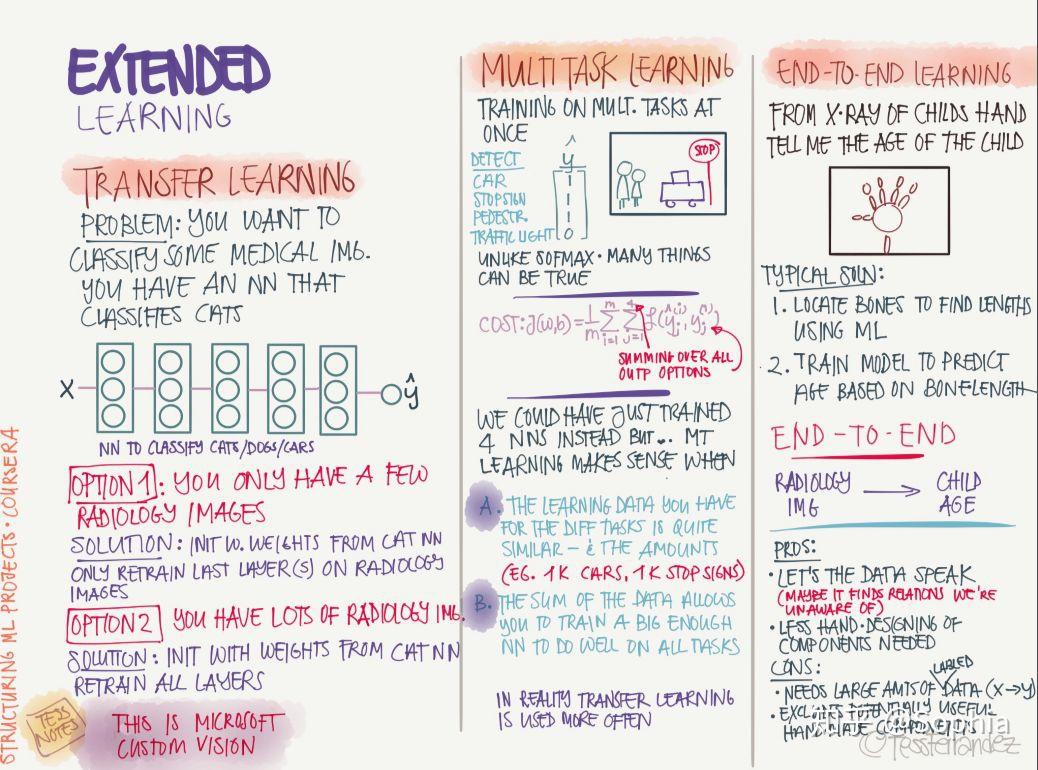 EXTENDED
LEARNING
TRANSFER LEARNING
PROBLEM: YOU WANT TO
CLASSIFY SOME MEDICAL IMG.
YOU HAVE AN NN THAT
CLASSIFIES CATS
X
ŷ
NN TO CLASSIFY CATS/DOGS/CARS
OPTION 1: YOU ONLY HAVE A FEW
RADIOLOGY IMAGES
SOLUTION: INIT W. WEIGHTS FROM CAT NN
ONLY RETRAIN LAST LAYER(S) ON RADIOLOGY
IMAGES
OPTION 2 YOU HAVE LOTS OF RADIOLOGY IMG.
SOLUTION: INIT WITH WEIGHTS FROM CAT NN
RETRAIN ALL LAYERS
TESS
NOTES
THIS IS MICROSOFT
CUSTOM VISION
STRUCTURING ML PROJECTS · COURSERA
MULTI TASK LEARNING
TRAINING ON MULT. TASKS AT
ONCE
DETECT
CAR
STOPSIGN
PEDESTR.
TRAFFIC LIGHT
ŷ
1
0
STOP
UNLIKE SOFMAX · MANY THINGS
CAN BE TRUE
COST: J(W,b) = 1/m Σ i=1 m Σ j=1 4 ℒ(ŷj(i), yj(i))
SUMMING OVER ALL
OUTP OPTIONS
WE COULD HAVE JUST TRAINED
4 NNS INSTEAD BUT... MT
LEARNING MAKES SENSE WHEN
A. THE LEARNING DATA YOU HAVE
FOR THE DIFF TASKS IS QUITE
SIMILAR - & THE AMOUNTS
(EG. 1K CARS, 1K STOP SIGNS)
B. THE SUM OF THE DATA ALLOWS
YOU TO TRAIN A BIG ENOUGH
NN TO DO WELL ON ALL TASKS
IN REALITY TRANSFER LEARNING
IS USED MORE OFTEN
END-TO-END LEARNING
FROM X-RAY OF CHILDS HAND
TELL ME THE AGE OF THE CHILD
TYPICAL SOLN:
1. LOCATE BONES TO FIND LENGTHS
USING ML
2. TRAIN MODEL TO PREDICT
AGE BASED ON BONELENGTH
END-TO-END
RADIOLOGY → CHILD
IMG AGE
PROS:
· LET'S THE DATA SPEAK
(MAYBE IT FINDS RELATIONS WE'RE
UNAWARE OF)
· LESS HAND-DESIGNING OF
COMPONENTS NEEDED
CONS:
LABLED
· NEEDS LARGE AMTS OF DATA (X→Y)
· EXCLUDES POTENTIALLY USEFUL
HAND-MADE COMPONENTS
知乎 @Sophia
@TessFerrandez